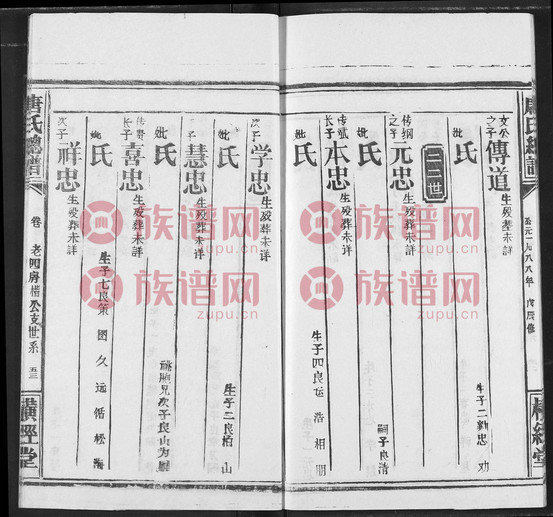 唐氏總譜
公元一九八八年 戊辰修
橫經堂
文公之子 傳道 生殁葬未詳
妣 氏 生子二 勉忠 劝
二二世
传纲之子 元忠 生殁葬未詳
妣 氏 嗣子良清
传斌长子 本忠 生殁葬未详
妣 氏 生子四 良运 浩 相 朋
次子 学忠 生殁葬未详
妣 氏 生子二 良柏 山
慧忠 生殁葬未詳
妣 氏 祧胞兄次子良山为嗣
长子 喜忠 生殁葬未詳
妣 氏 生子七 良策 图 久 远 循 松 海
次子 祥忠 生殁葬未詳
唐氏總譜
卷 老四房楷公支世系 五三
橫經堂
族谱网
zupu.cn
族谱网
zupu.cn
族谱网
zupu.cn
族谱网
zupu.cn